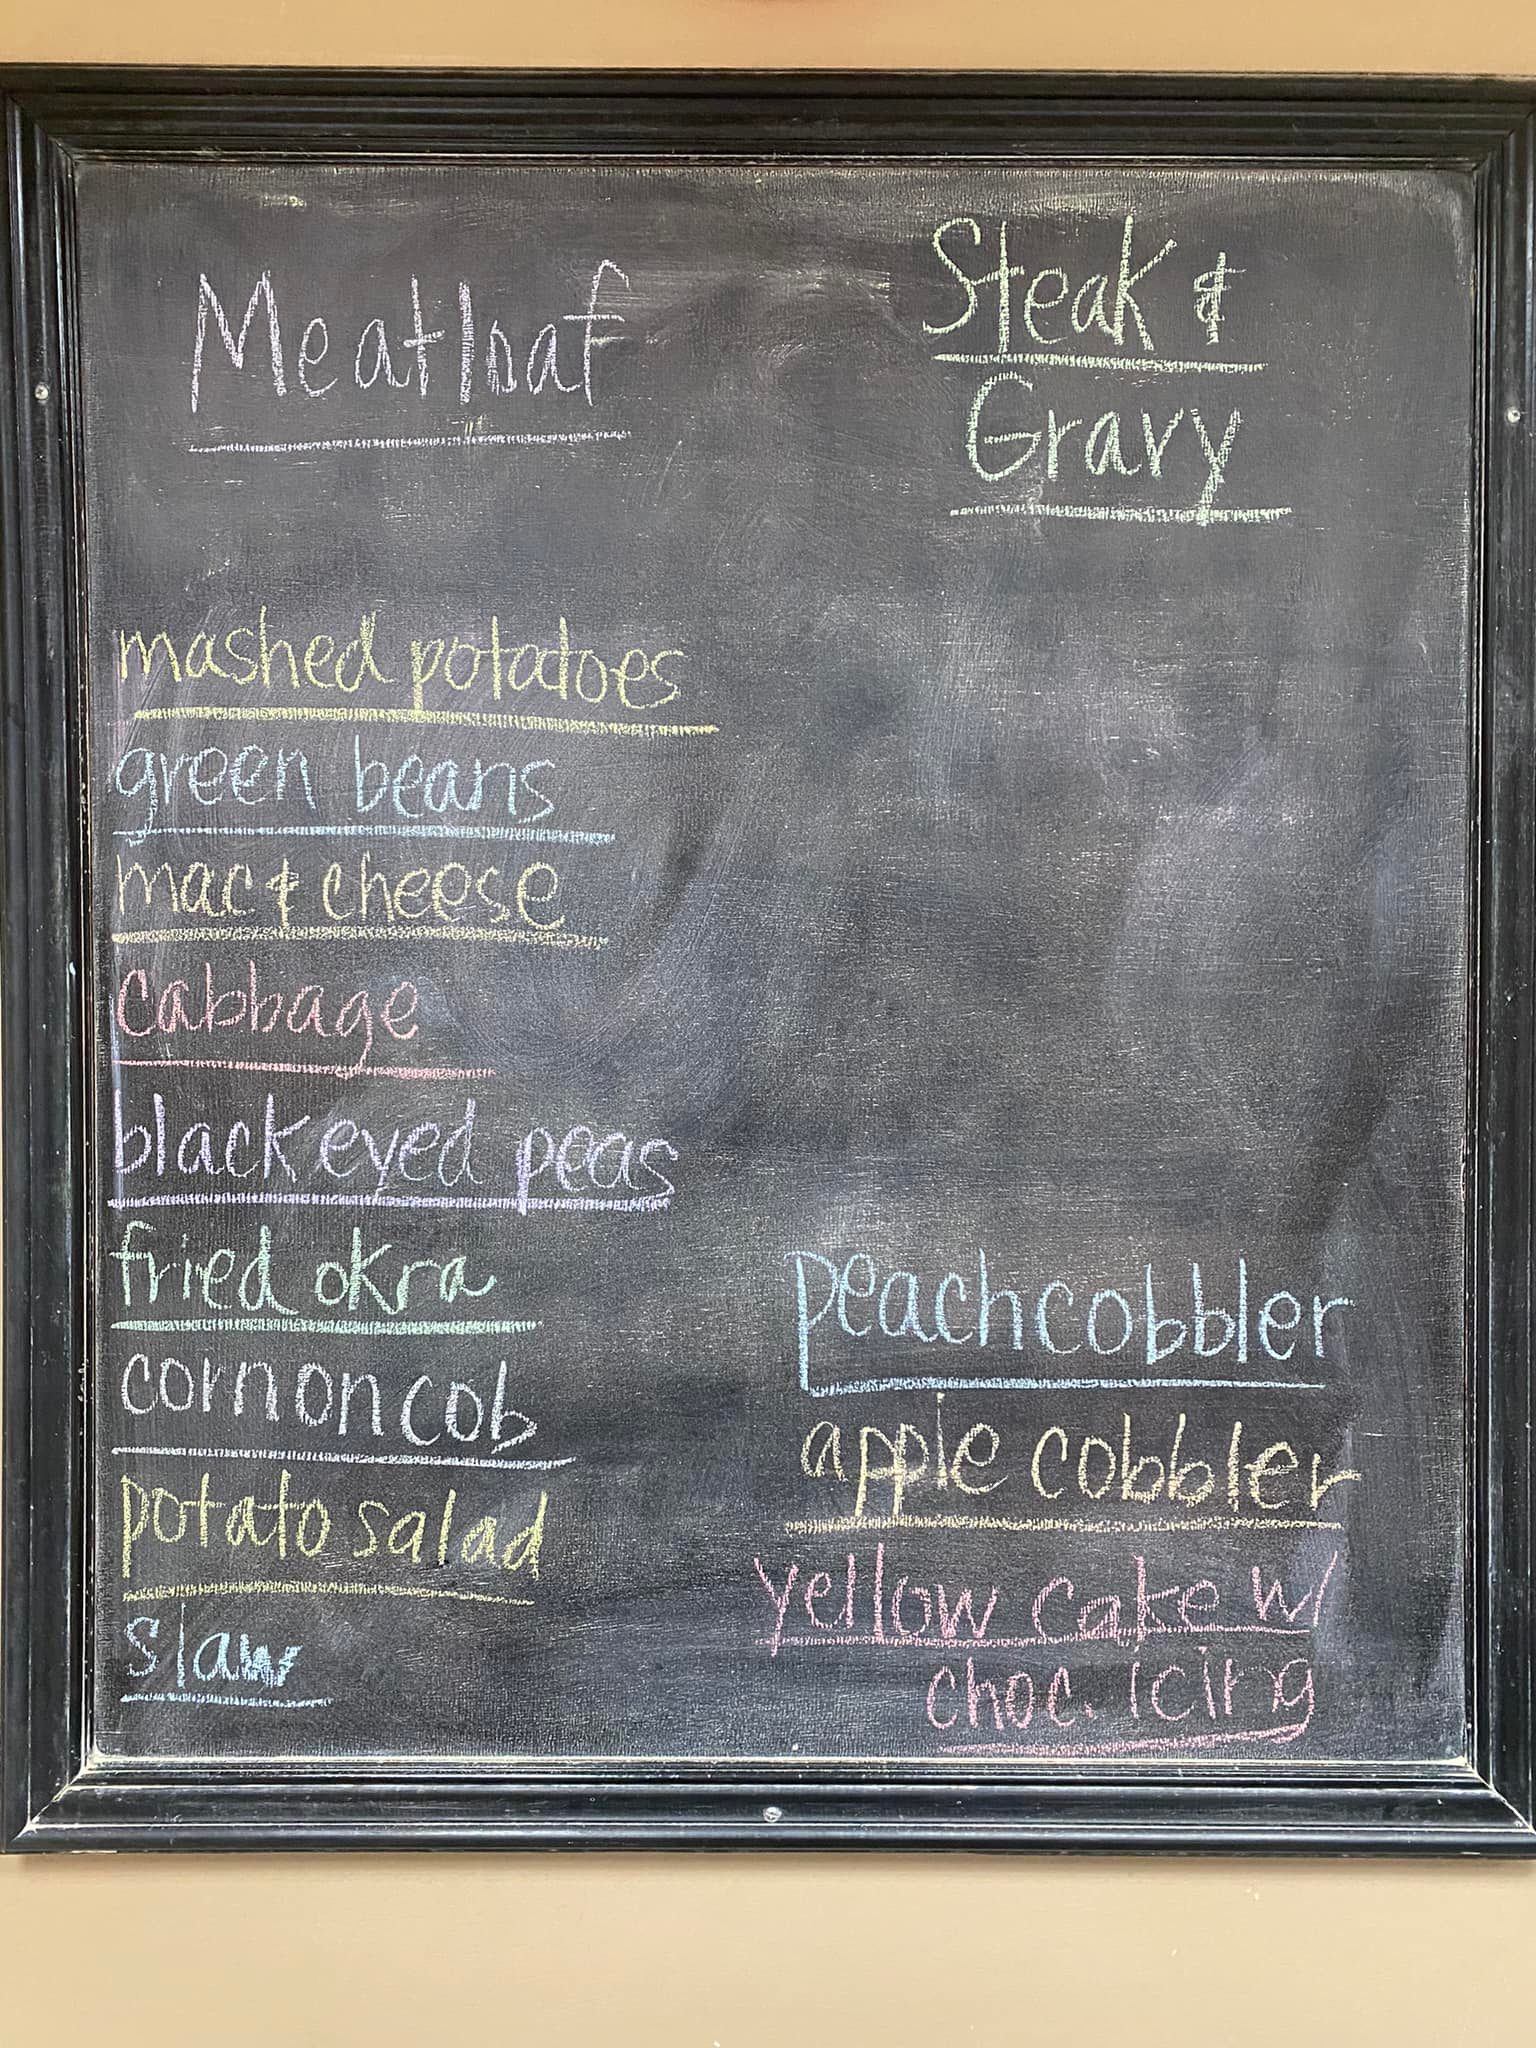 Meatloaf
Steak &
Gravy
mashed potatoes
green beans
mac & cheese
cabbage
black eyed peas
fried okra
corn on cob
potato salad
slaw
peach cobbler
apple cobbler
yellow cake w/
choc. icing